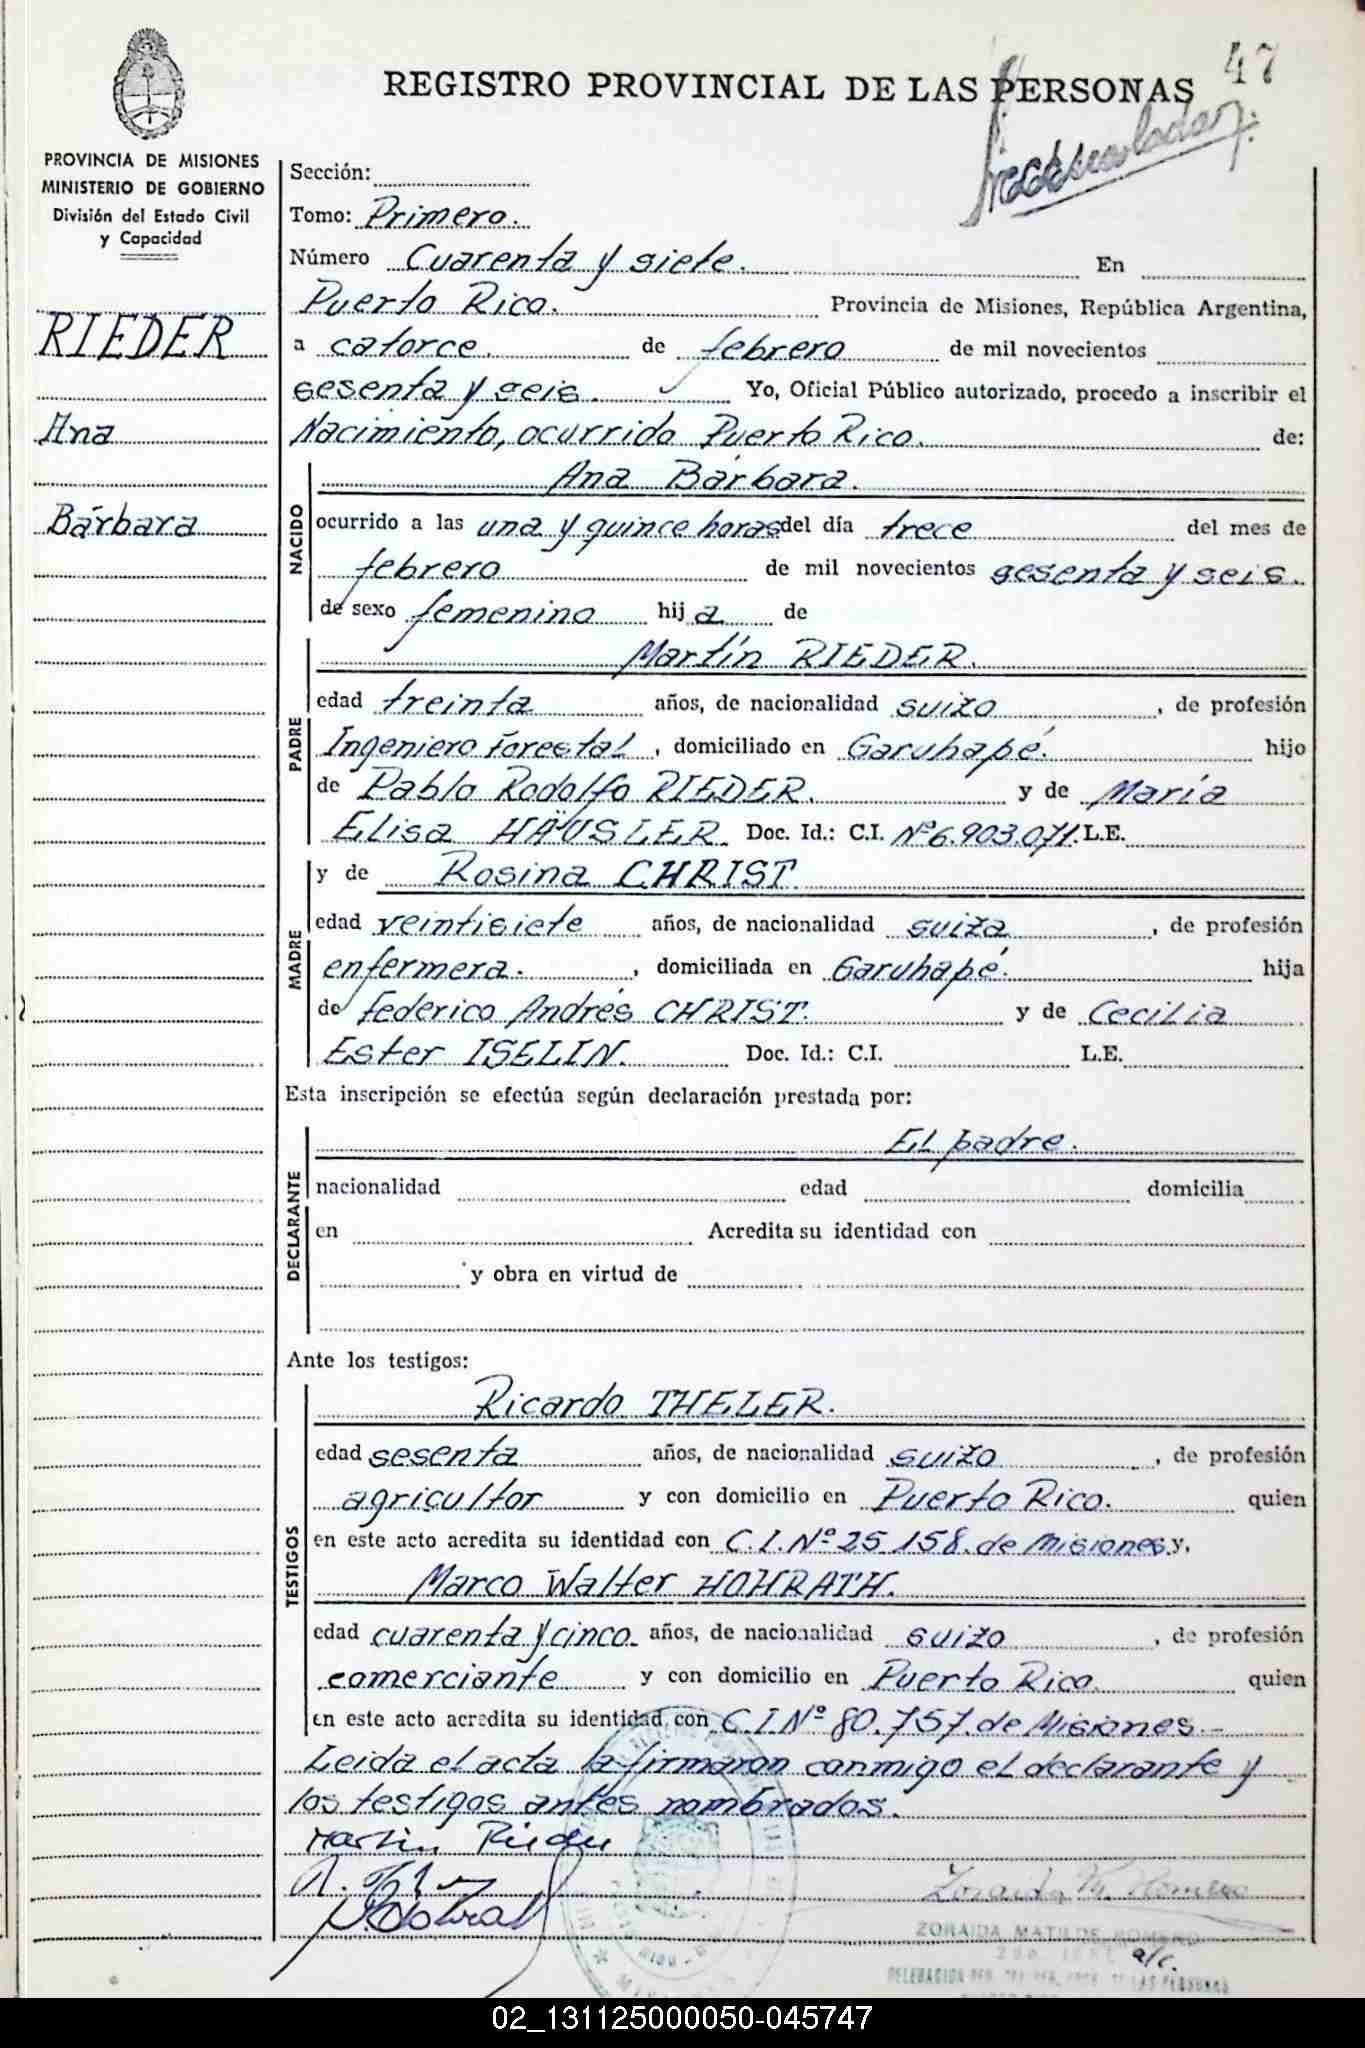 47
REGISTRO PROVINCIAL DE LAS PERSONAS
PROVINCIA DE MISIONES
MINISTERIO DE GOBIERNO
División del Estado Civil
y Capacidad
RIEDER
Ana
Bárbara
Sección:
Tomo: Primero.
Número Cuarenta y siete. En
Puerto Rico. Provincia de Misiones, República Argentina,
a catorce. de febrero de mil novecientos
sesenta y seis. Yo, Oficial Público autorizado, procedo a inscribir el
Nacimiento, ocurrido Puerto Rico. de:
NACIDO
Ana Bárbara.
ocurrido a las una y quince horas del día trece del mes de
febrero de mil novecientos sesenta y seis.
de sexo femenino hija de
PADRE
Martín RIEDER.
edad treinta años, de nacionalidad suizo, de profesión
Ingeniero Forestal, domiciliado en Garuhapé. hijo
de Pablo Rodolfo RIEDER. y de María
Elisa HÄUSLER. Doc. Id.: C.I. Nº 6.903.071. L.E.
MADRE
y de Rosina CHRIST.
edad veintisiete años, de nacionalidad suiza, de profesión
enfermera., domiciliada en Garuhapé. hija
de Federico Andrés CHRIST. y de Cecilia
Ester ISELIN. Doc. Id.: C.I. L.E.
Esta inscripción se efectúa según declaración prestada por:
DECLARANTE
El padre.
nacionalidad edad domicilia
en Acredita su identidad con
y obra en virtud de
Ante los testigos:
TESTIGOS
Ricardo THELER.
edad sesenta años, de nacionalidad suizo, de profesión
agricultor y con domicilio en Puerto Rico. quien
en este acto acredita su identidad con C.I. Nº 25.158. de Misiones y,
Marco Walter HOHRATH.
edad cuarenta y cinco. años, de nacionalidad suizo, de profesión
comerciante y con domicilio en Puerto Rico. quien
en este acto acredita su identidad con C.I Nº 80.757. de Misiones.-
Leida el acta la firmaron conmigo el declarante y
los testigos antes nombrados.
Martin Rieder
Zoraida M. Romero
ZORAIDA MATILDE ROMERO
a/c.
02_131125000050-045747